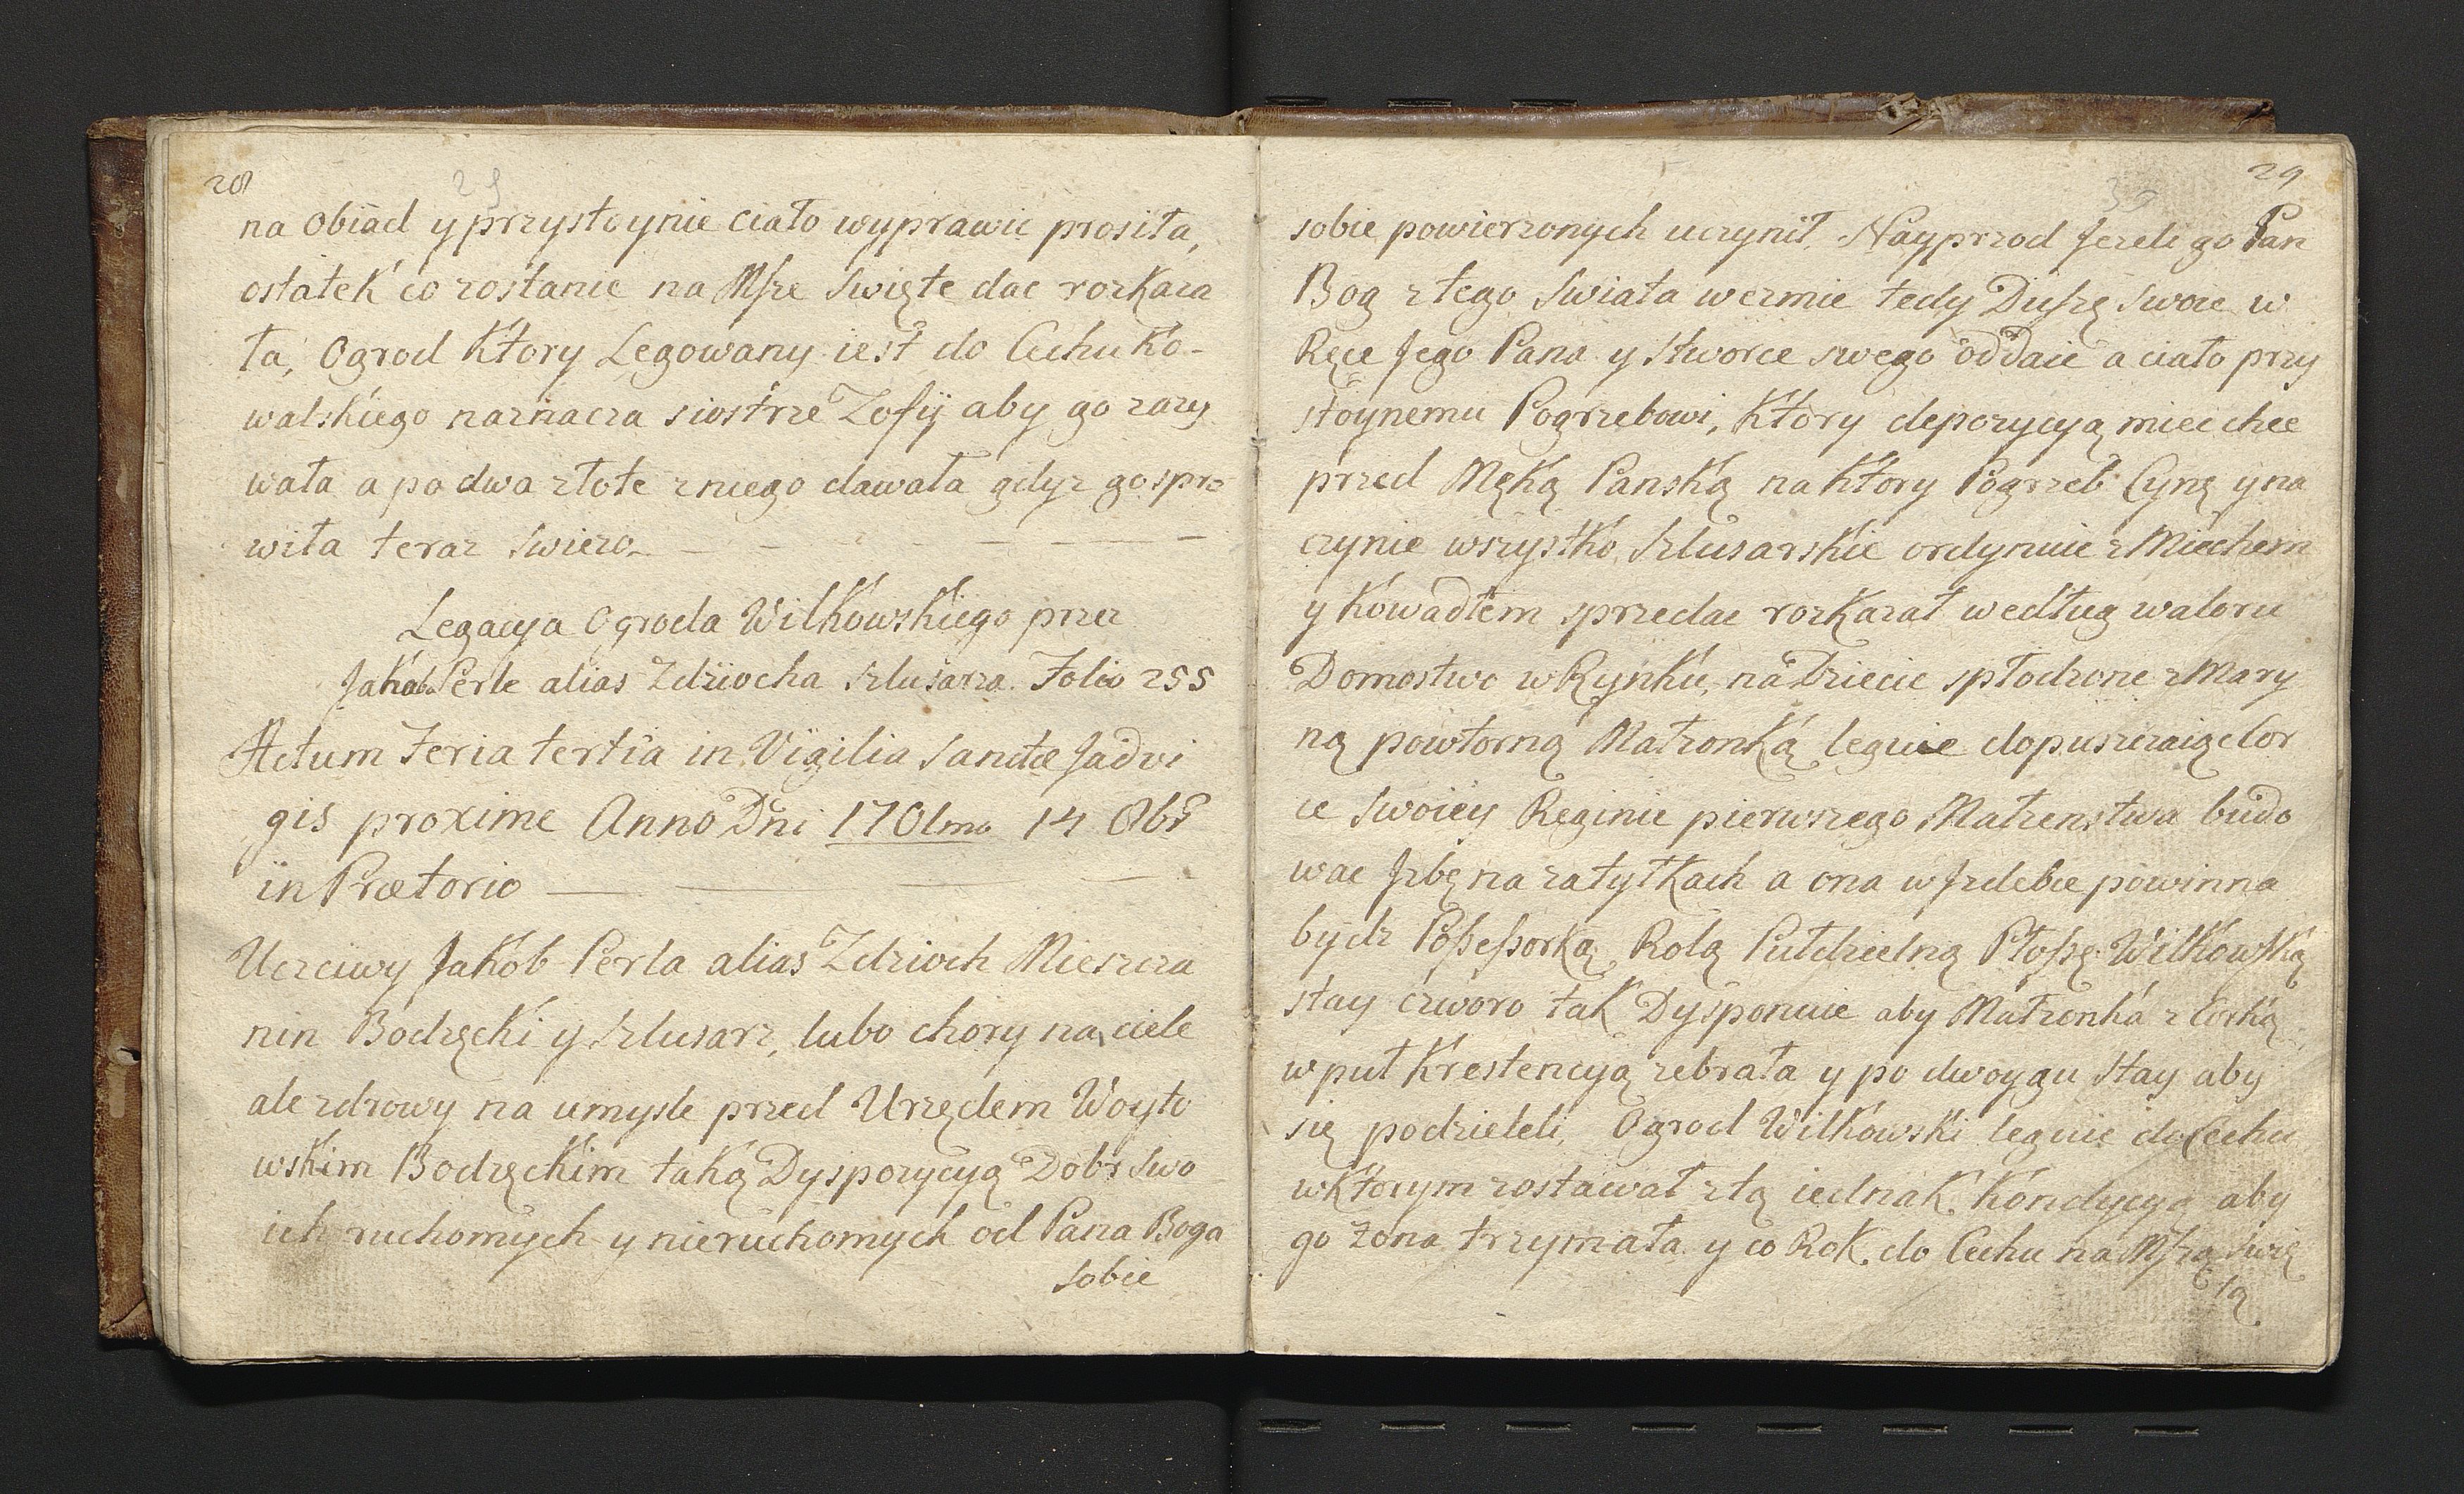 28
29
na Obiad y przystoynie ciało wyprawic prosiła,
ostatek co zostanie na Msze Swięte dac rozkaza
ła, Ogrod Ktory Legowany iest do Cechu Ko-
walskiego naznacza siostrze Zofij aby go zazy
wała a po dwa złote z niego dawała gdyz go spra
wiła teraz swiezo
Legacya Ogroda Wilkowskiego przez
Jakoba Perle alias Zdziocha Szlusarza. Folio 255
Actum Feria tertia in Vigilia Sanctæ Jadvi
gis proxime Anno Dni 1701mo 14 Obr
in Prætorio
Uczciwy Jakob Perla alias Zdzioch Mieszcza
nin Bodzęcki y Szlusarz, lubo chory na ciele
ale zdrowy na umysle przed Urzędem Woyto
wskim Bodzęckim taką Dyspozycyą Dobr swo
ich ruchomych y nieruchomych od Pana Boga
sobie
29
30
sobie powierzonych uczynił. Nayprzod Jezeli go Pan
Bog z tego Swiata wezmie tedy Duszę swoie w
Ręce Jego Pana y Stworce swego oddaie a ciało przy
stoynemu Pogrzebowi, Ktory depozycyą miec chce
przed Męką Panską na Ktory Pogrzeb Cynę y na
czynie wszystko Szlusarskie ordynuie z Miechem
y Kowadłem sprzedac rozkazał według waloru
Domostwo w Rynku, na Dziecie spłodzone z Mary
ną powtorną Małzonką leguie dopuszczaiąc Cor
ce swoiey Reginie pierwszego Małzenstwa budo
wac Jzbę na zatyłkach a ona w Jzdebce powinna
bydz Possessorką, Rolą Pułdzielną Płossę Wilkowską
stay czworo tak Dysponuie aby Małzonka z Corką
w puł Krestencyą zebrała y po dwoygu Stay aby
się podzieleli, Ogrod Wilkowski leguie do Cechu
w Ktorym zostawał z tą iednak Kondycyą aby
go Zona trzymała y co Rok do Cechu na Mszą Swię
tą